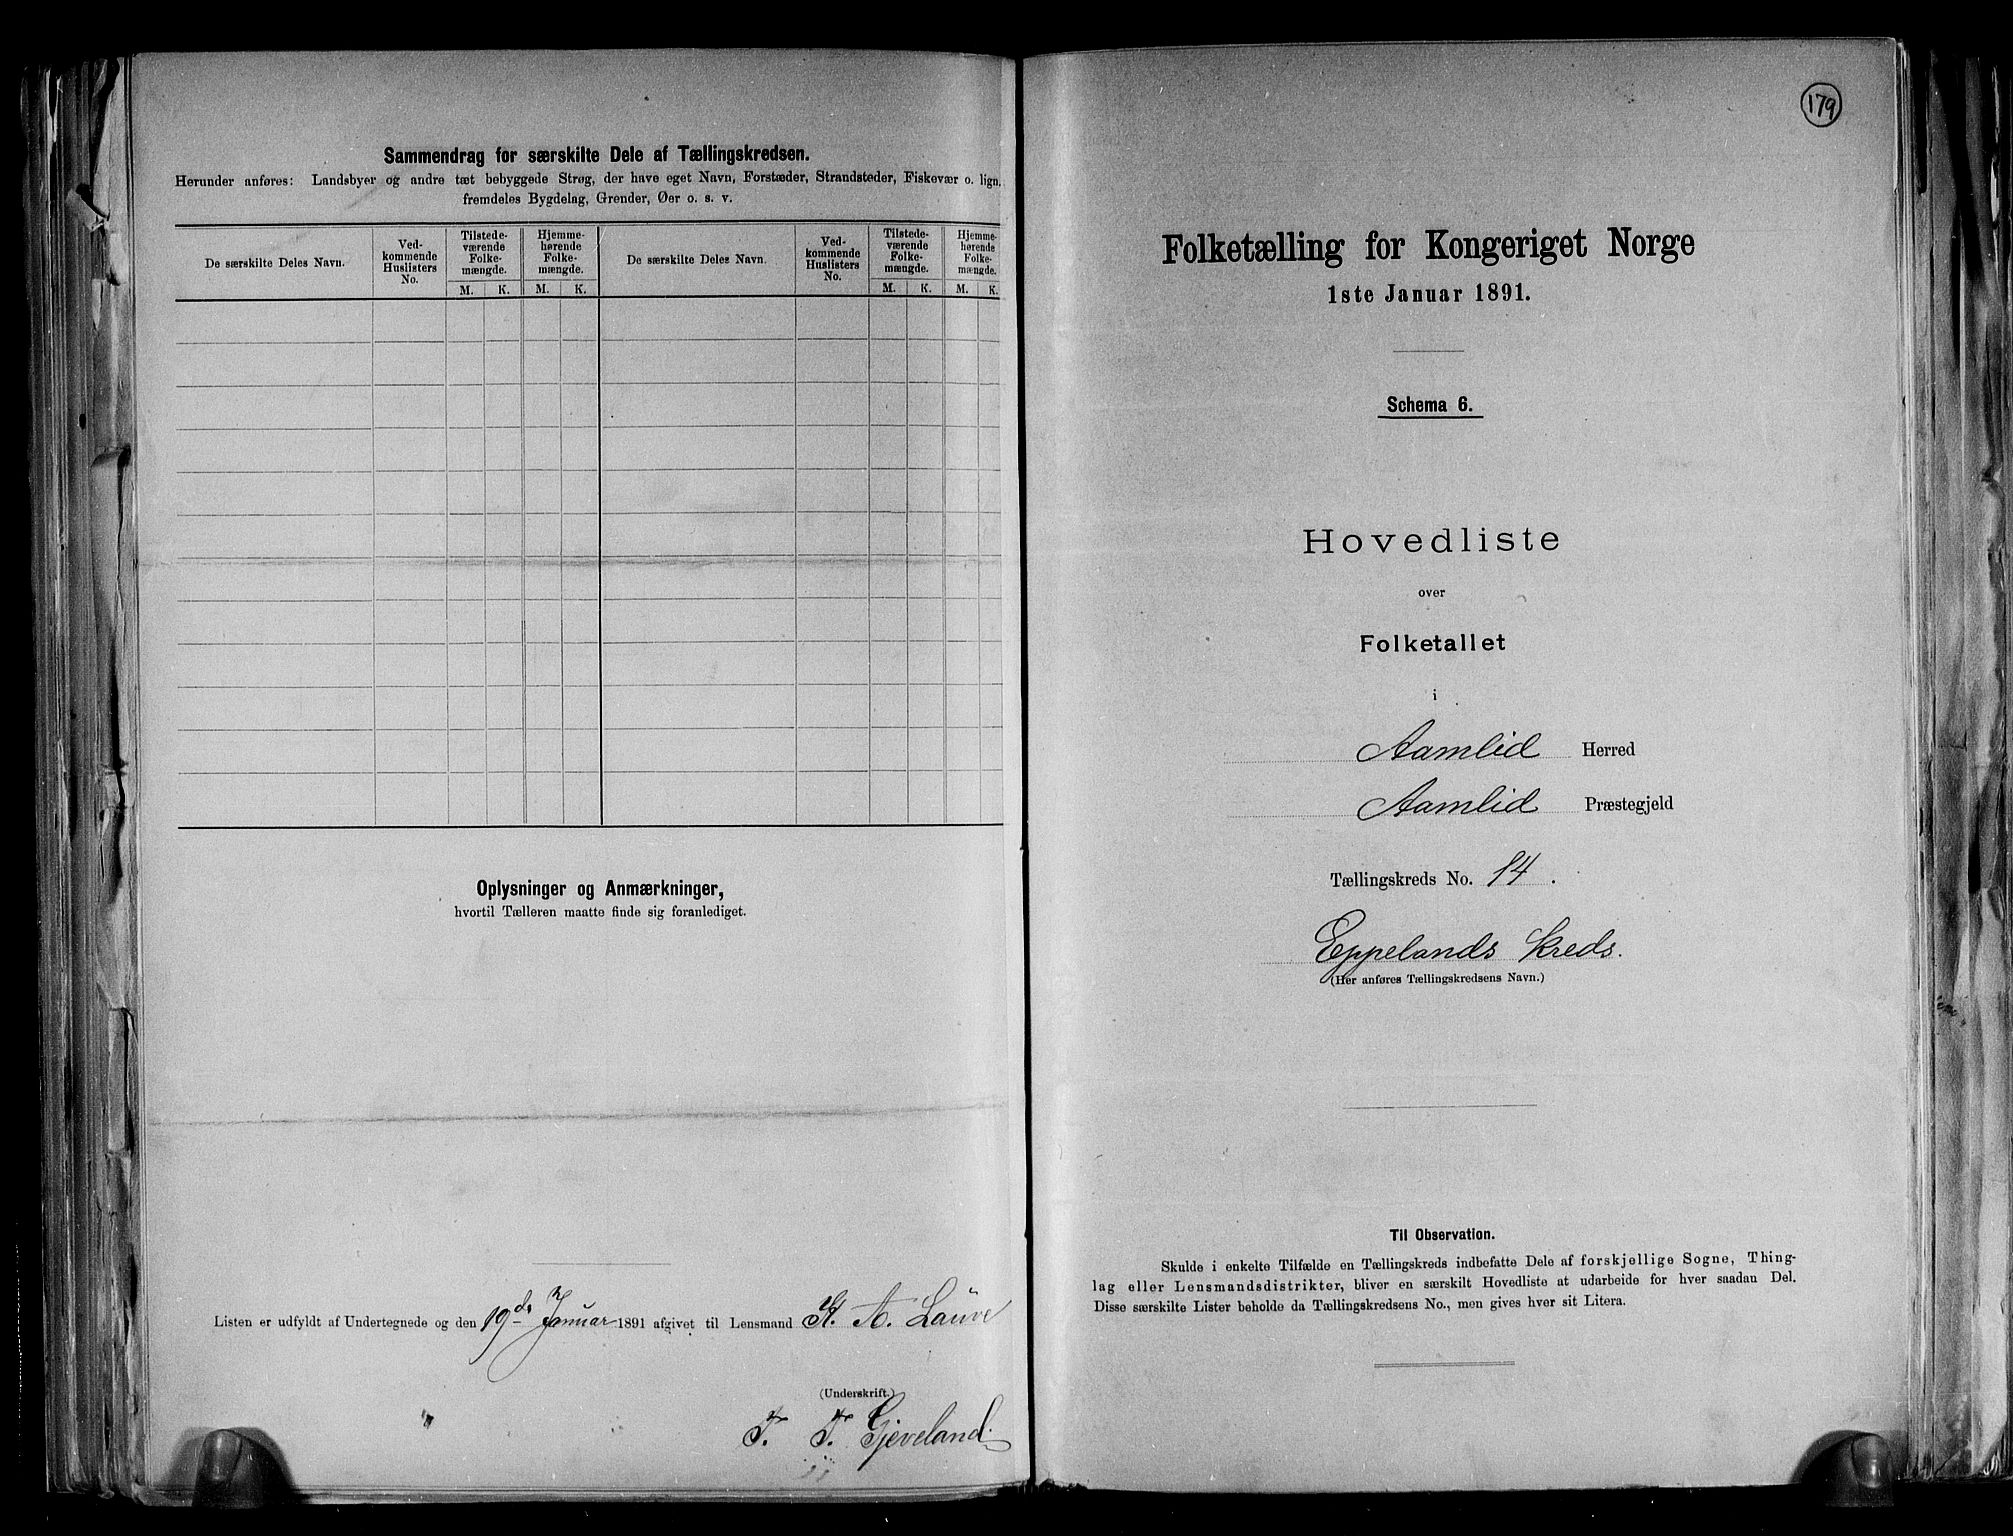 Sammendrag for særskilte Dele af Tællingskredsen.
Herunder anføres: Landsbyer og andre tæt bebyggede Strøg, der have eget Navn, Forstæder, Strandsteder, Fiskevær o. lign.
fremdeles Bygdelag, Grender, Øer o. s. v.
De særskilte Deles Navn.
Ved-
kommende
Huslisters
No.
Tilstede-
værende
Folke-
mængde.
Hjemme-
hørende
Folke-
mængde.
De særskilte Deles Navn.
Ved-
kommende
Huslisters
No.
Tilstede-
værende
Folke-
mængde.
Hjemme-
hørende
Folke-
mængde.
M. K. M. K. M. K. M. K.
Oplysninger og Anmærkninger,
hvortil Tælleren maatte finde sig foranlediget.
Listen er udfyldt af Undertegnede og den 19de Januar 1891 afgivet til Lensmand A. Lauve
(Underskrift.)
T. T. Gjeveland
179
Folketælling for Kongeriget Norge
1ste Januar 1891.
Schema 6.
Hovedliste
over
Folketallet
i
Aamlid Herred
Aamlid Præstegjeld
Tællingskreds No. 14.
Eppelands kreds.
(Her anføres Tællingskredsens Navn.)
Til Observation.
Skulde i enkelte Tilfælde en Tællingskreds indbefatte Dele af forskjellige Sogne, Thing-
lag eller Lensmandsdistrikter, bliver en særskilt Hovedliste at udarbeide for hver saadan Del.
Disse særskilte Lister beholde da Tællingskredsens No., men gives hver sit Litera.